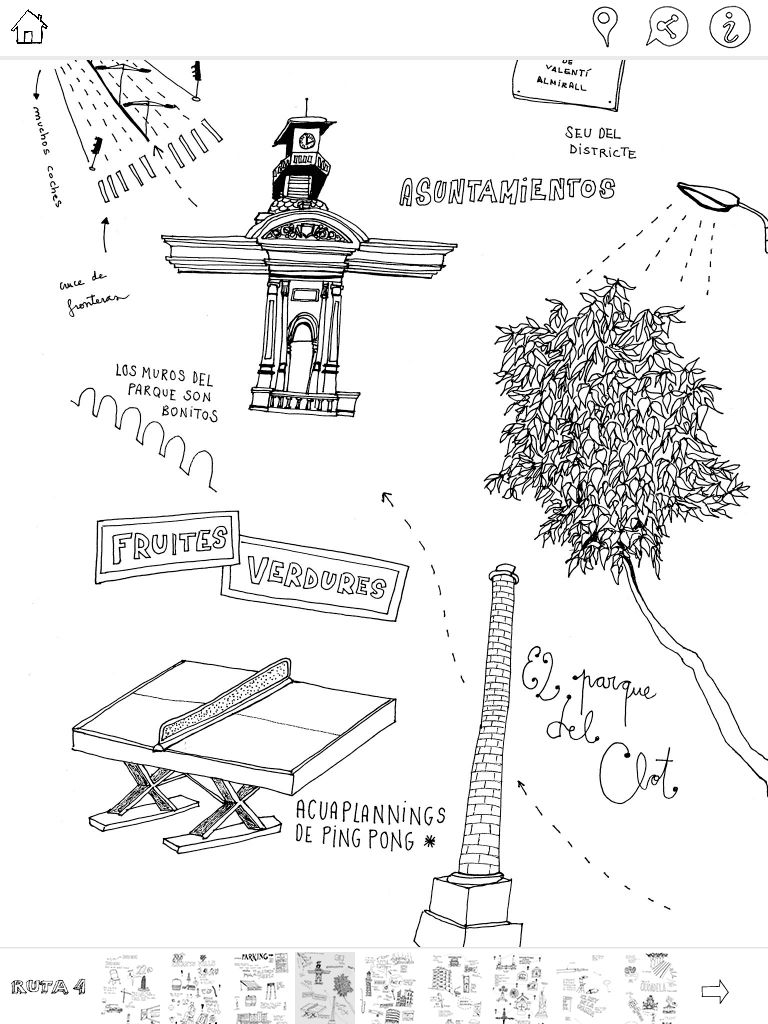 DE
VALENTÍ
ALMIRALL
SEU DEL
DISTRICTE
muchos coches
ASUNTAMiENTOS
cruce de
fronteras
LOS MUROS DEL
PARQUE SON
BONITOS
FRUITES
VERDURES
EL parque
del
Clot
ACUAPLANNiNGS
DE PiNG PONG *
RUTA 4
PARKING